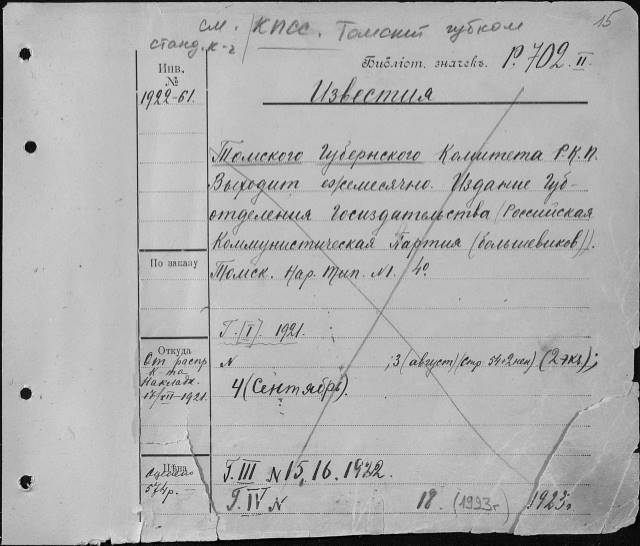 см. КПСС. Томский губком
станд. к-г
15
Библіот. значекъ. Р. 702. II.
Инв.
№
1922-61.
Известия
Томского Губернского Комитета Р.К.П.
Выходит ежемесячно. Издание Губ-
отделения Госиздательства (Российская
Коммунистическая Партия (большевиков)).
По заказу
Томск. Нар. Тип. №1. 4º
Г. [I]. 1921.
Откуда
От распр
К-та
17/VII-1921.
N ; 3 (август) (стр. 54+2 нен) (2 экз);
4 (Сентябрь).
Цѣна
574 р. —
Г. III N 15, 16. 1922.
Г. IV N 18. (1923 г) 1923 г.